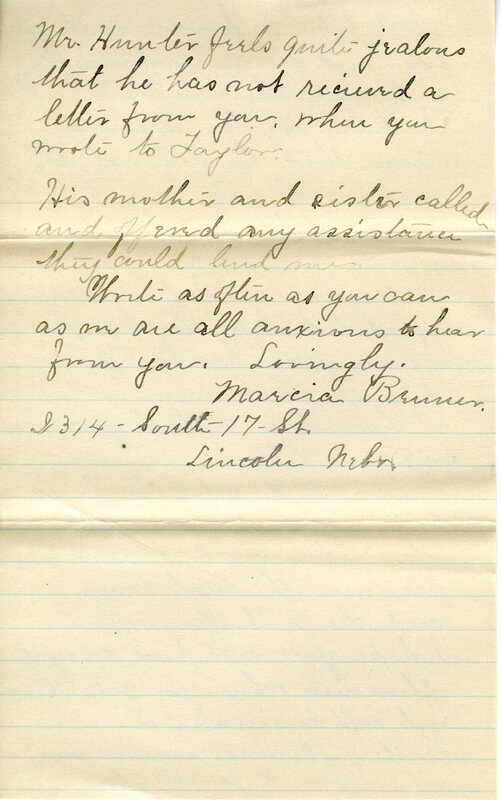 Mr. Hunter feels quite jealous
that he has not recieved a
letter from you, when you
wrote to Taylor.
His mother and sister called
and offered any assistance
they could lend me.
Write as often as you can
as we are all anxious to hear
from you. Lovingly.
Marcia Bruner.
2314 - South - 17 - St.
Lincoln Nebr.